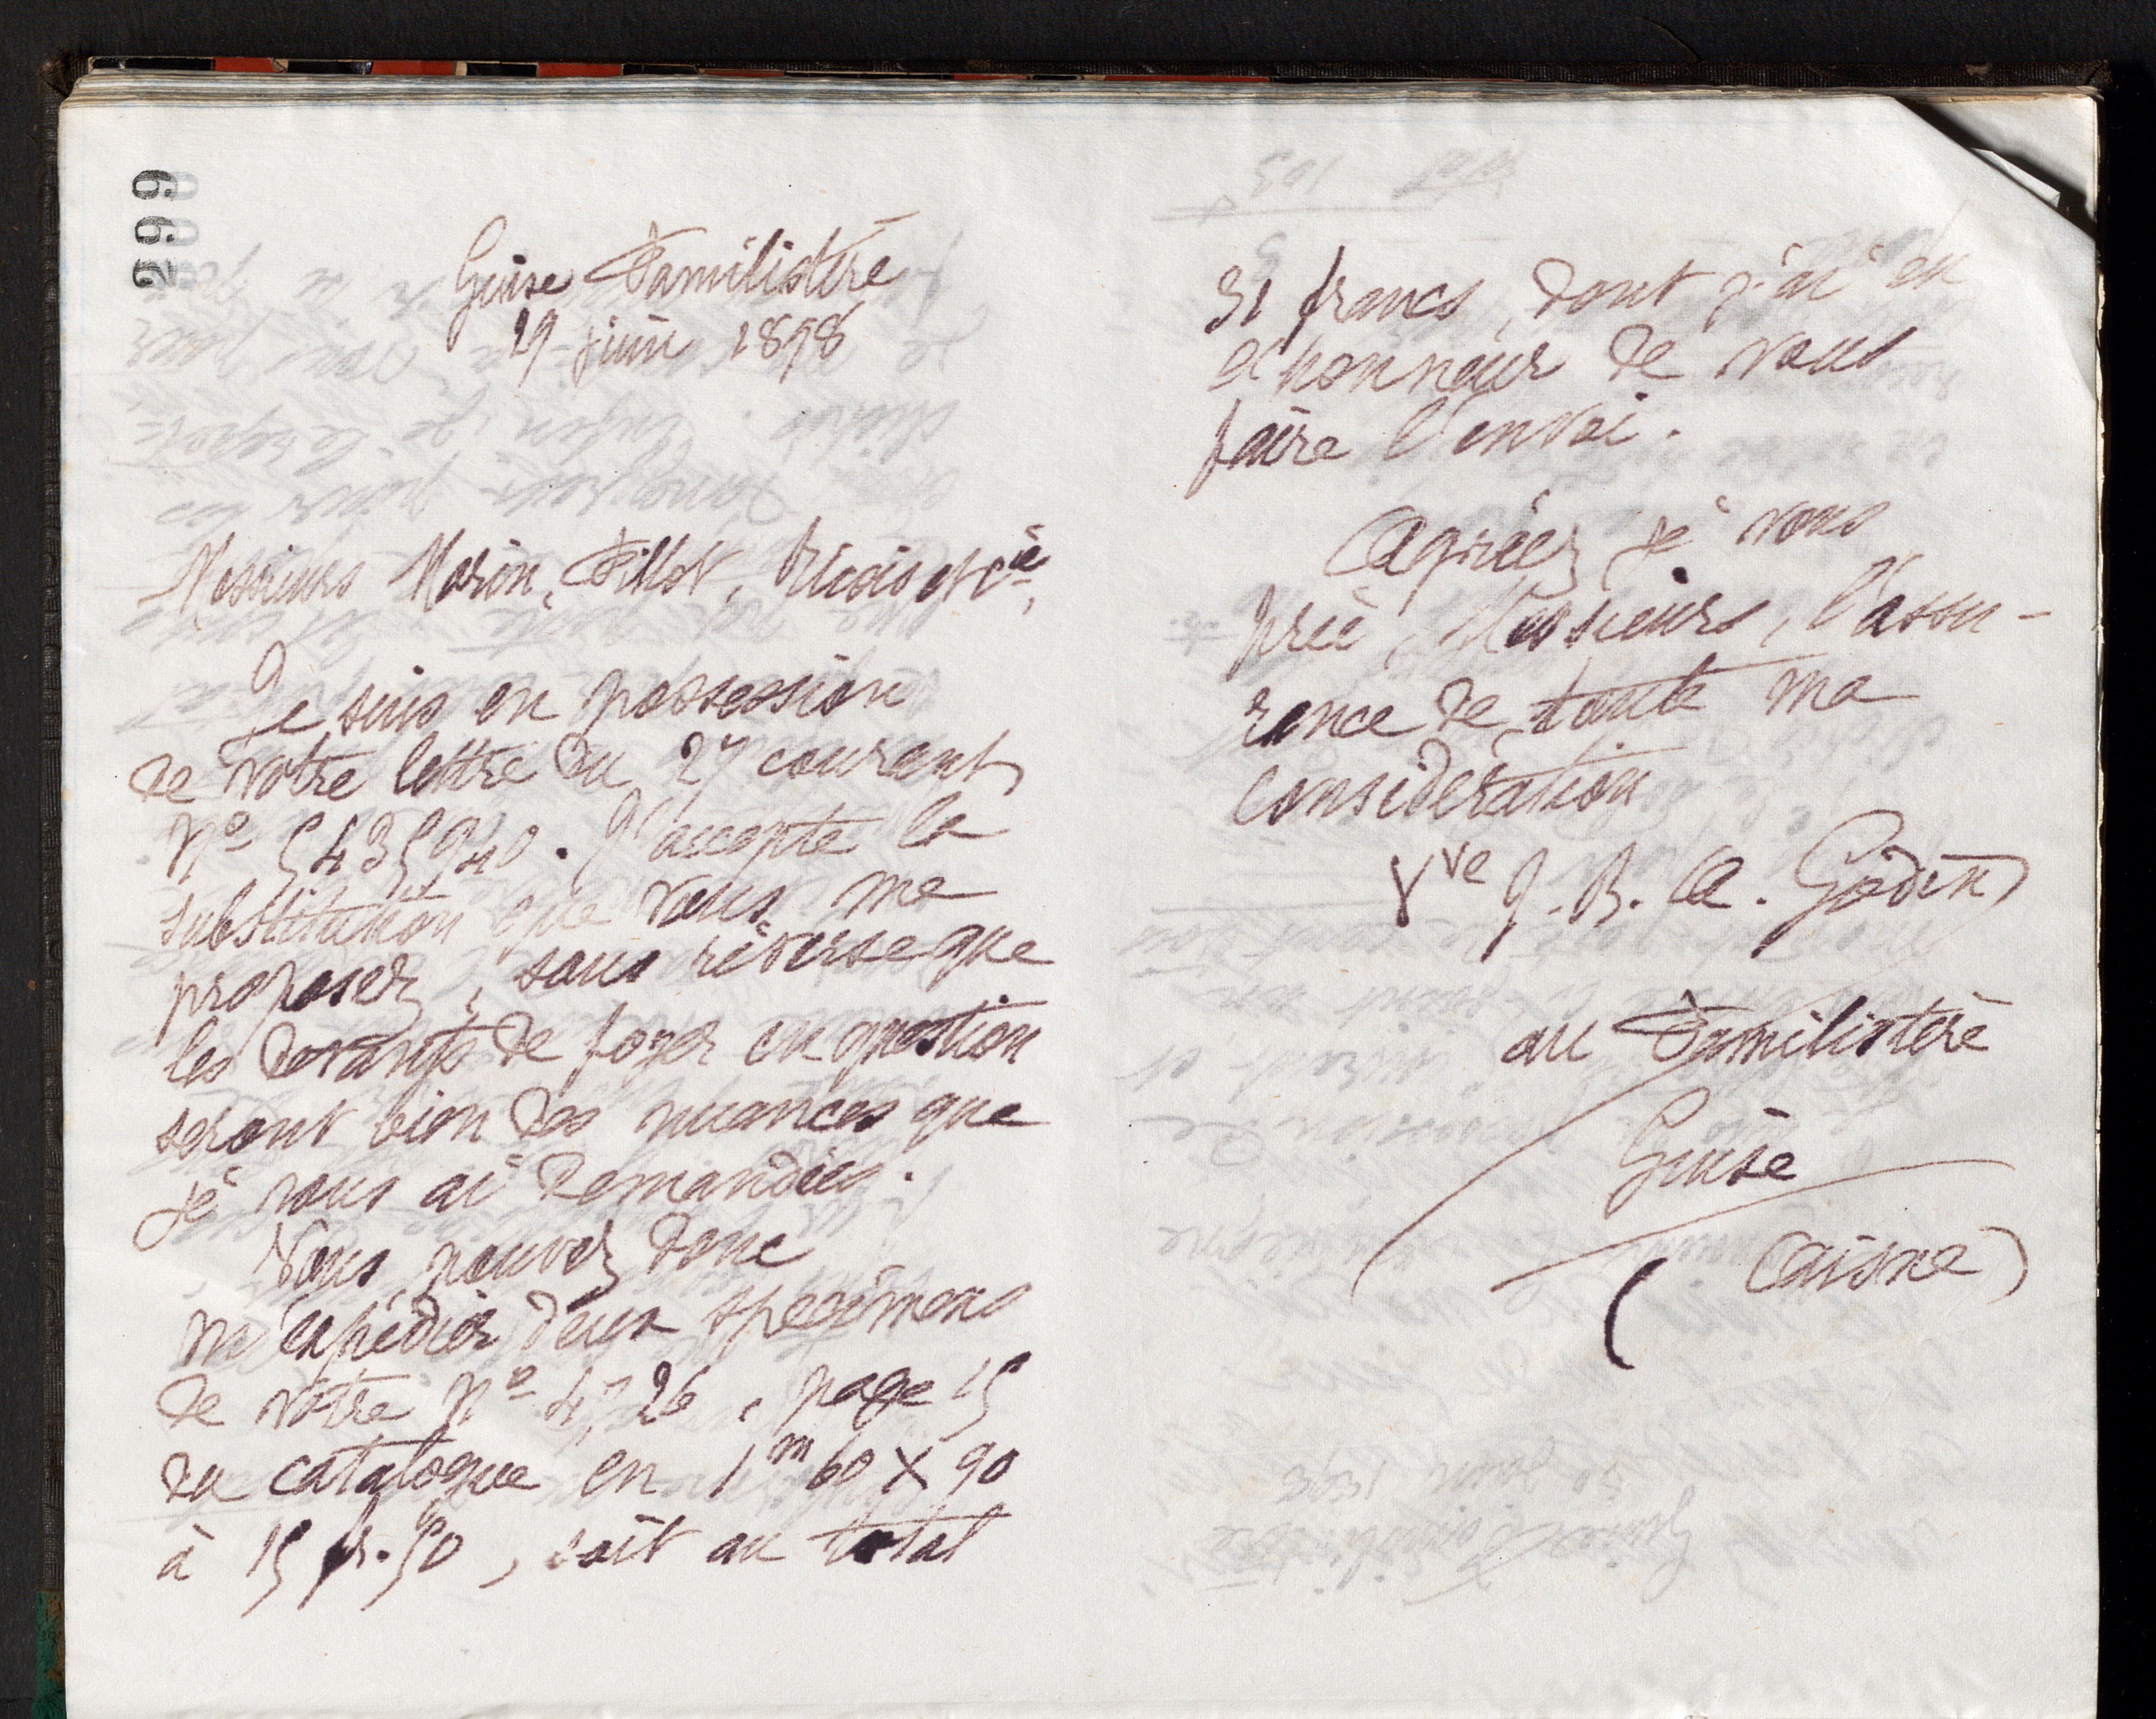 299
Guise Familistère
29 juin 1898
Messieurs Morin, Fillot, Ricois et Cie,
Je suis en possession
de votre lettre du 27 courant
No 5435940. J'accepte la
substitution que vous me
proposez, sous réserve que
les devants de foyer en question
seront bien des nuances que
je vous ai demandées.
Vous pouvez donc
m'expédier deux spécimens
de votre No 4726, page 15
du catalogue en 1m60 X 90
à 15 fr. 50, soit au total
31 francs, dont j'ai eu
l'honneur de vous
faire l'envoi.
Agréez je vous
prie, Messieurs, l'assu-
rance de toute ma
considération
Vve J. B. A. Godin
au Familistère
Guise
(Aisne)